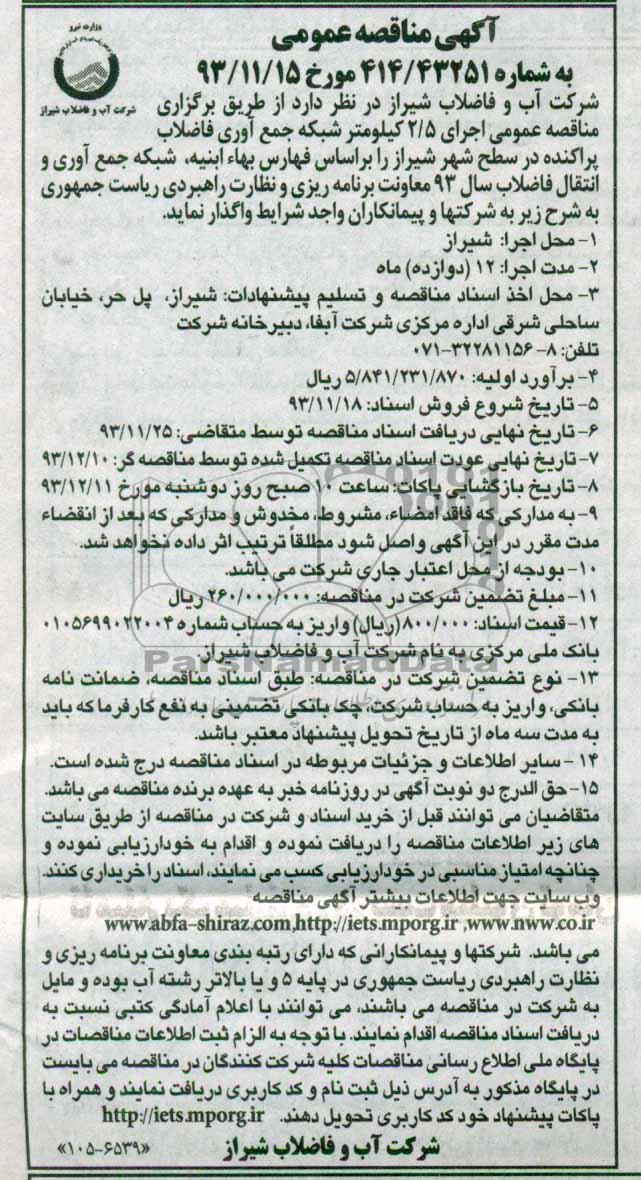 وزارت نیرو
شرکت آب و فاضلاب شیراز
آگهی مناقصه عمومی
به شماره ۴۱۴/۴۳۲۵۱ مورخ ۹۳/۱۱/۱۵
شرکت آب و فاضلاب شیراز در نظر دارد از طریق برگزاری
مناقصه عمومی اجرای ۲/۵ کیلومتر شبکه جمع آوری فاضلاب
پراکنده در سطح شهر شیراز را براساس فهارس بهاء ابنیه، شبکه جمع آوری و
انتقال فاضلاب سال ۹۳ معاونت برنامه ریزی و نظارت راهبردی ریاست جمهوری
به شرح زیر به شرکتها و پیمانکاران واجد شرایط واگذار نماید.
۱- محل اجرا: شیراز
۲- مدت اجرا: ۱۲ (دوازده) ماه
۳- محل اخذ اسناد مناقصه و تسلیم پیشنهادات: شیراز، پل حر، خیابان
ساحلی شرقی اداره مرکزی شرکت آبفا، دبیرخانه شرکت
تلفن: ۸- ۳۲۲۸۱۱۵۶-۰۷۱
۴- برآورد اولیه: ۵/۸۴۱/۲۳۱/۸۷۰ ریال
۵- تاریخ شروع فروش اسناد: ۹۳/۱۱/۱۸
۶- تاریخ نهایی دریافت اسناد مناقصه توسط متقاضی: ۹۳/۱۱/۲۵
۷- تاریخ نهایی عودت اسناد مناقصه تکمیل شده توسط مناقصه گر: ۹۳/۱۲/۱۰
۸- تاریخ بازگشایی پاکات: ساعت ۱۰ صبح روز دوشنبه مورخ ۹۳/۱۲/۱۱
۹- به مدارکی که فاقد امضاء، مشروط، مخدوش و مدارکی که بعد از انقضاء
مدت مقرر در این آگهی واصل شود مطلقاً ترتیب اثر داده نخواهد شد.
۱۰- بودجه از محل اعتبار جاری شرکت می باشد.
۱۱- مبلغ تضمین شرکت در مناقصه: ۲۶۰/۰۰۰/۰۰۰ ریال
۱۲- قیمت اسناد: ۸۰۰/۰۰۰ (ریال) واریز به حساب شماره ۰۱۰۵۶۹۹۰۲۲۰۰۴
بانک ملی مرکزی به نام شرکت آب و فاضلاب شیراز.
ParsNamadData
۱۳- نوع تضمین شرکت در مناقصه: طبق اسناد مناقصه، ضمانت نامه
بانکی، واریز به حساب شرکت، چک بانکی تضمینی به نفع کارفرما که باید
به مدت سه ماه از تاریخ تحویل پیشنهاد معتبر باشد.
۱۴- سایر اطلاعات و جزئیات مربوطه در اسناد مناقصه درج شده است.
۱۵- حق الدرج دو نوبت آگهی در روزنامه خبر به عهده برنده مناقصه می باشد.
متقاضیان می توانند قبل از خرید اسناد و شرکت در مناقصه از طریق سایت
های زیر اطلاعات مناقصه را دریافت نموده و اقدام به خودارزیابی نموده و
چنانچه امتیاز مناسبی در خودارزیابی کسب می نمایند، اسناد را خریداری کنند.
وب سایت جهت اطلاعات بیشتر آگهی مناقصه
www.abfa-shiraz.com,http://iets.mporg.ir ,www.nww.co.ir
می باشد. شرکتها و پیمانکارانی که دارای رتبه بندی معاونت برنامه ریزی و
نظارت راهبردی ریاست جمهوری در پایه ۵ و یا بالاتر رشته آب بوده و مایل
به شرکت در مناقصه می باشند، می توانند با اعلام آمادگی کتبی نسبت به
دریافت اسناد مناقصه اقدام نمایند. با توجه به الزام ثبت اطلاعات مناقصات در
پایگاه ملی اطلاع رسانی مناقصات کلیه شرکت کنندگان در مناقصه می بایست
در پایگاه مذکور به آدرس ذیل ثبت نام و کد کاربری دریافت نمایند و همراه با
پاکات پیشنهاد خود کد کاربری تحویل دهند. http://iets.mporg.ir
شرکت آب و فاضلاب شیراز
«۱۰۵-۶۵۳۹»